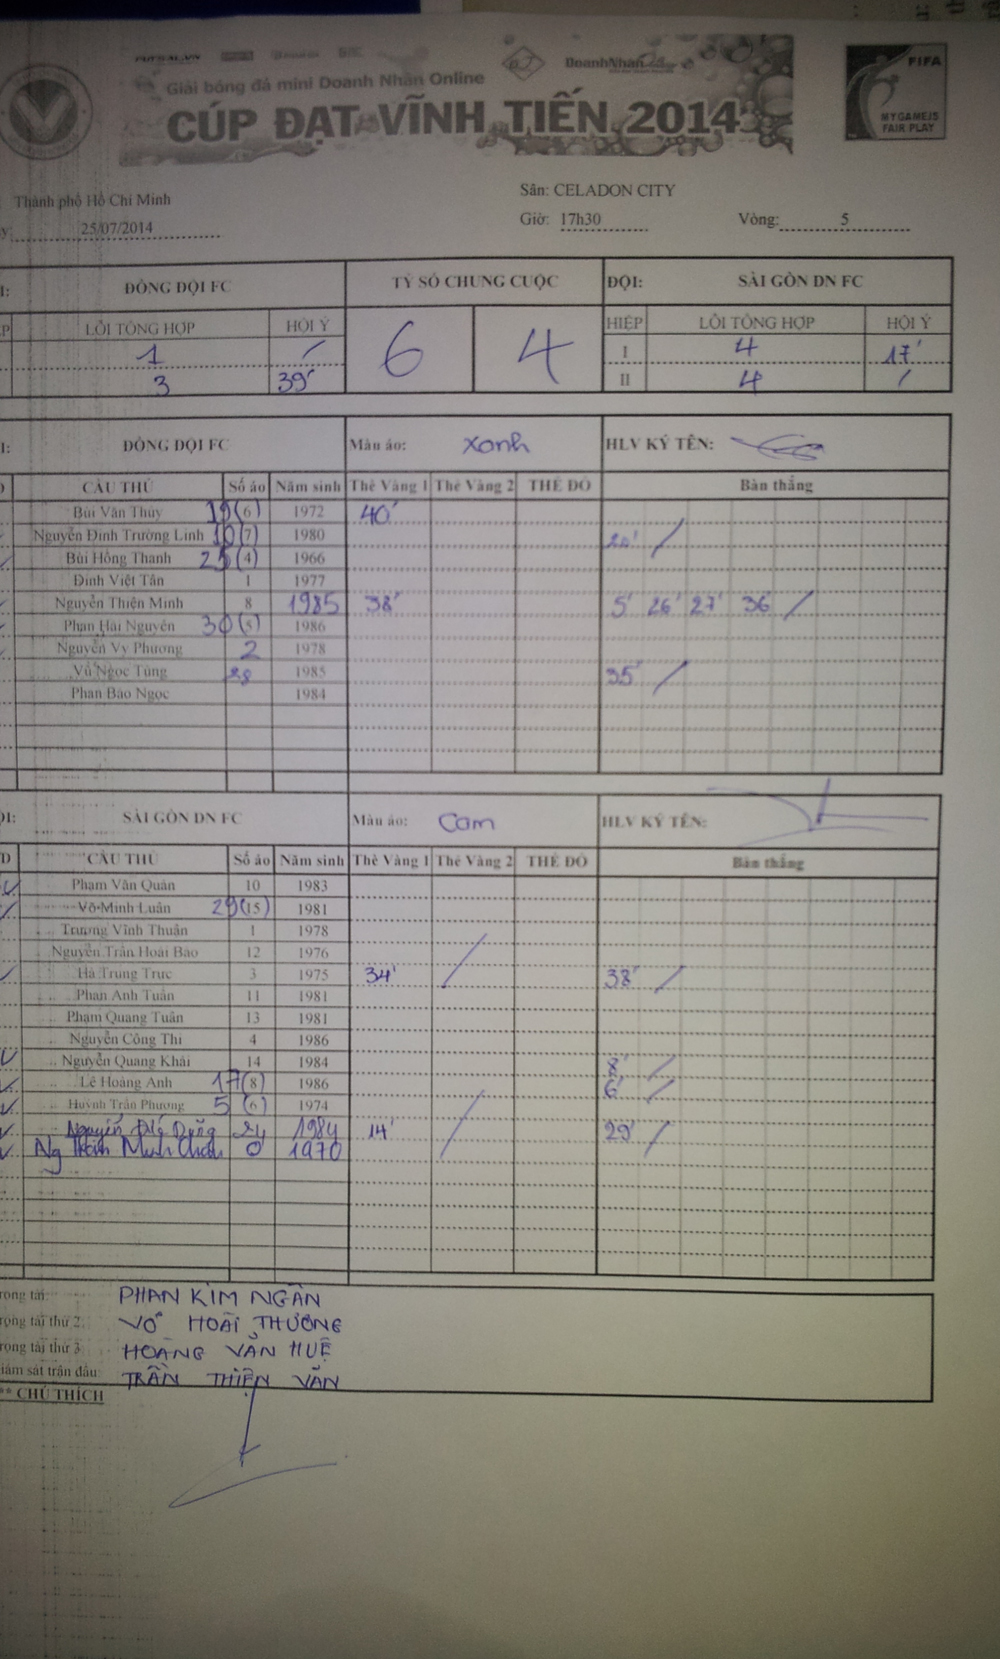 Giải bóng đá mini Doanh Nhân Online
CÚP ĐẠT VĨNH TIẾN 2014
FIFA
MY GAME IS
FAIR PLAY
Thành phố Hồ Chí Minh
Sân: CELADON CITY
25/07/2014
Giờ: 17h30 Vòng: 5
ĐỒNG ĐỘI FC TỶ SỐ CHUNG CUỘC ĐỘI: SÀI GÒN DN FC
LỖI TỔNG HỢP HỘI Ý 6 4 HIỆP LỖI TỔNG HỢP HỘI Ý
1 / I 4 17'
3 39' II 4 /
ĐỒNG ĐỘI FC Màu áo: Xanh HLV KÝ TÊN:
CẦU THỦ Số áo Năm sinh Thẻ Vàng 1 Thẻ Vàng 2 THẺ ĐỎ Bàn thắng
Bùi Văn Thủy 19 (6) 1972 40'
Nguyễn Đình Trường Linh 10 (7) 1980 /
Bùi Hồng Thanh 25 (4) 1966
Đinh Việt Tân 1 1977
Nguyễn Thiện Minh 8 1985 38' 5' 26' 27' 36' /
Phan Hải Nguyên 30 (5) 1986
Nguyễn Vy Phương 2 1978
Vũ Ngọc Tùng 28 1985 35' /
Phan Bảo Ngọc 1984
SÀI GÒN DN FC Màu áo: Cam HLV KÝ TÊN:
CẦU THỦ Số áo Năm sinh Thẻ Vàng 1 Thẻ Vàng 2 THẺ ĐỎ Bàn thắng
Phạm Văn Quân 10 1983
Võ Minh Luân 29 (15) 1981
Trương Vĩnh Thuận 1 1978
Nguyễn Trần Hoài Bảo 12 1976
Hà Trung Trực 3 1975 34' / 38' /
Phan Anh Tuấn 11 1981
Phạm Quang Tuân 13 1981
Nguyễn Công Thi 4 1986
Nguyễn Quang Khải 14 1984 8' /
Lê Hoàng Anh 17 (8) 1986 6' /
Huỳnh Trần Phương 5 (6) 1974
Nguyễn Dũng 24 1984 14' / 29' /
Ng Minh 0 1970
rọng tài: PHAN KIM NGÂN
rọng tài thứ 2: VÕ HOÀI THƯƠNG
rọng tài thứ 3 HOÀNG VĂN HUỆ
iám sát trận đấu: TRẦN THIỆN VĂN
** CHÚ THÍCH